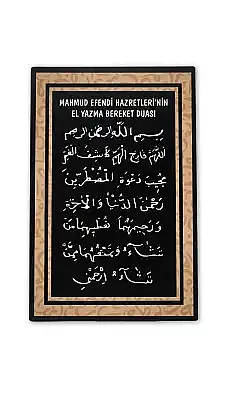 MAHMUD EFENDİ HAZRETLERİ'NİN
EL YAZMA BEREKET DUASI
بِسْمِ اللّٰهِ الرَّحْمٰنِ الرَّحِيمِ
اَللّٰهُمَّ فَارِجَ الْهَمِّ كَاشِفَ الْغَمِّ
مُجِيبَ دَعْوَةِ الْمُضْطَرِّينَ
رَحْمٰنَ الدُّنْيَا وَالْاٰخِرَةِ
وَرَحِيمَهُمَا تُعْطِيهِمَا مَنْ
تَشَاءُ وَتَمْنَعُهُمَا مِمَّنْ
تَشَاءُ اِرْحَمْنِي